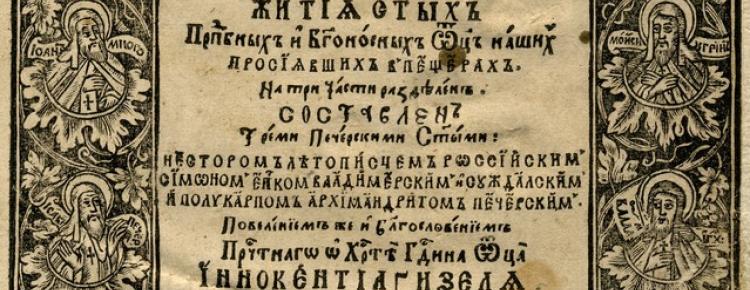 ЖИТІѦ СТЫХЪ
Прпⷣбныхъ и҆ Бг҃оно́сныхъ Ѿцъ нашиⷯ
ПРОСІѦВШИХЪ В ПЕЩЕРАХЪ.
На три Части раздѣленъ.
СОСТАВЛЕНЪ
Треми Печерскими Стыми:
НЕСТОРОМЪ ЛѢТОПИСЧЕМЪ РѠССІЙСКИМЪ
СІМѠНОМЪ ЕПⷭ҇КОМЪ ВЛАДИМЕРСКИМЪ И СУЖДАЛСКИМЪ
И ПОЛУКАРПОМЪ АРХІМАНДРИТОМЪ ПЕЧЕРСКИМЪ.
Повеленіемъ же и Благословеніемъ
Прⷱ҇тнаго ѡ Хрⷭ҇тѣ Гⷭ҇дина Ѿца
ІННОКЕНТІА ГІЗЕЛѦ
ІОАНЪ
МНОГО
МОѴСІ
УГРІНЪ